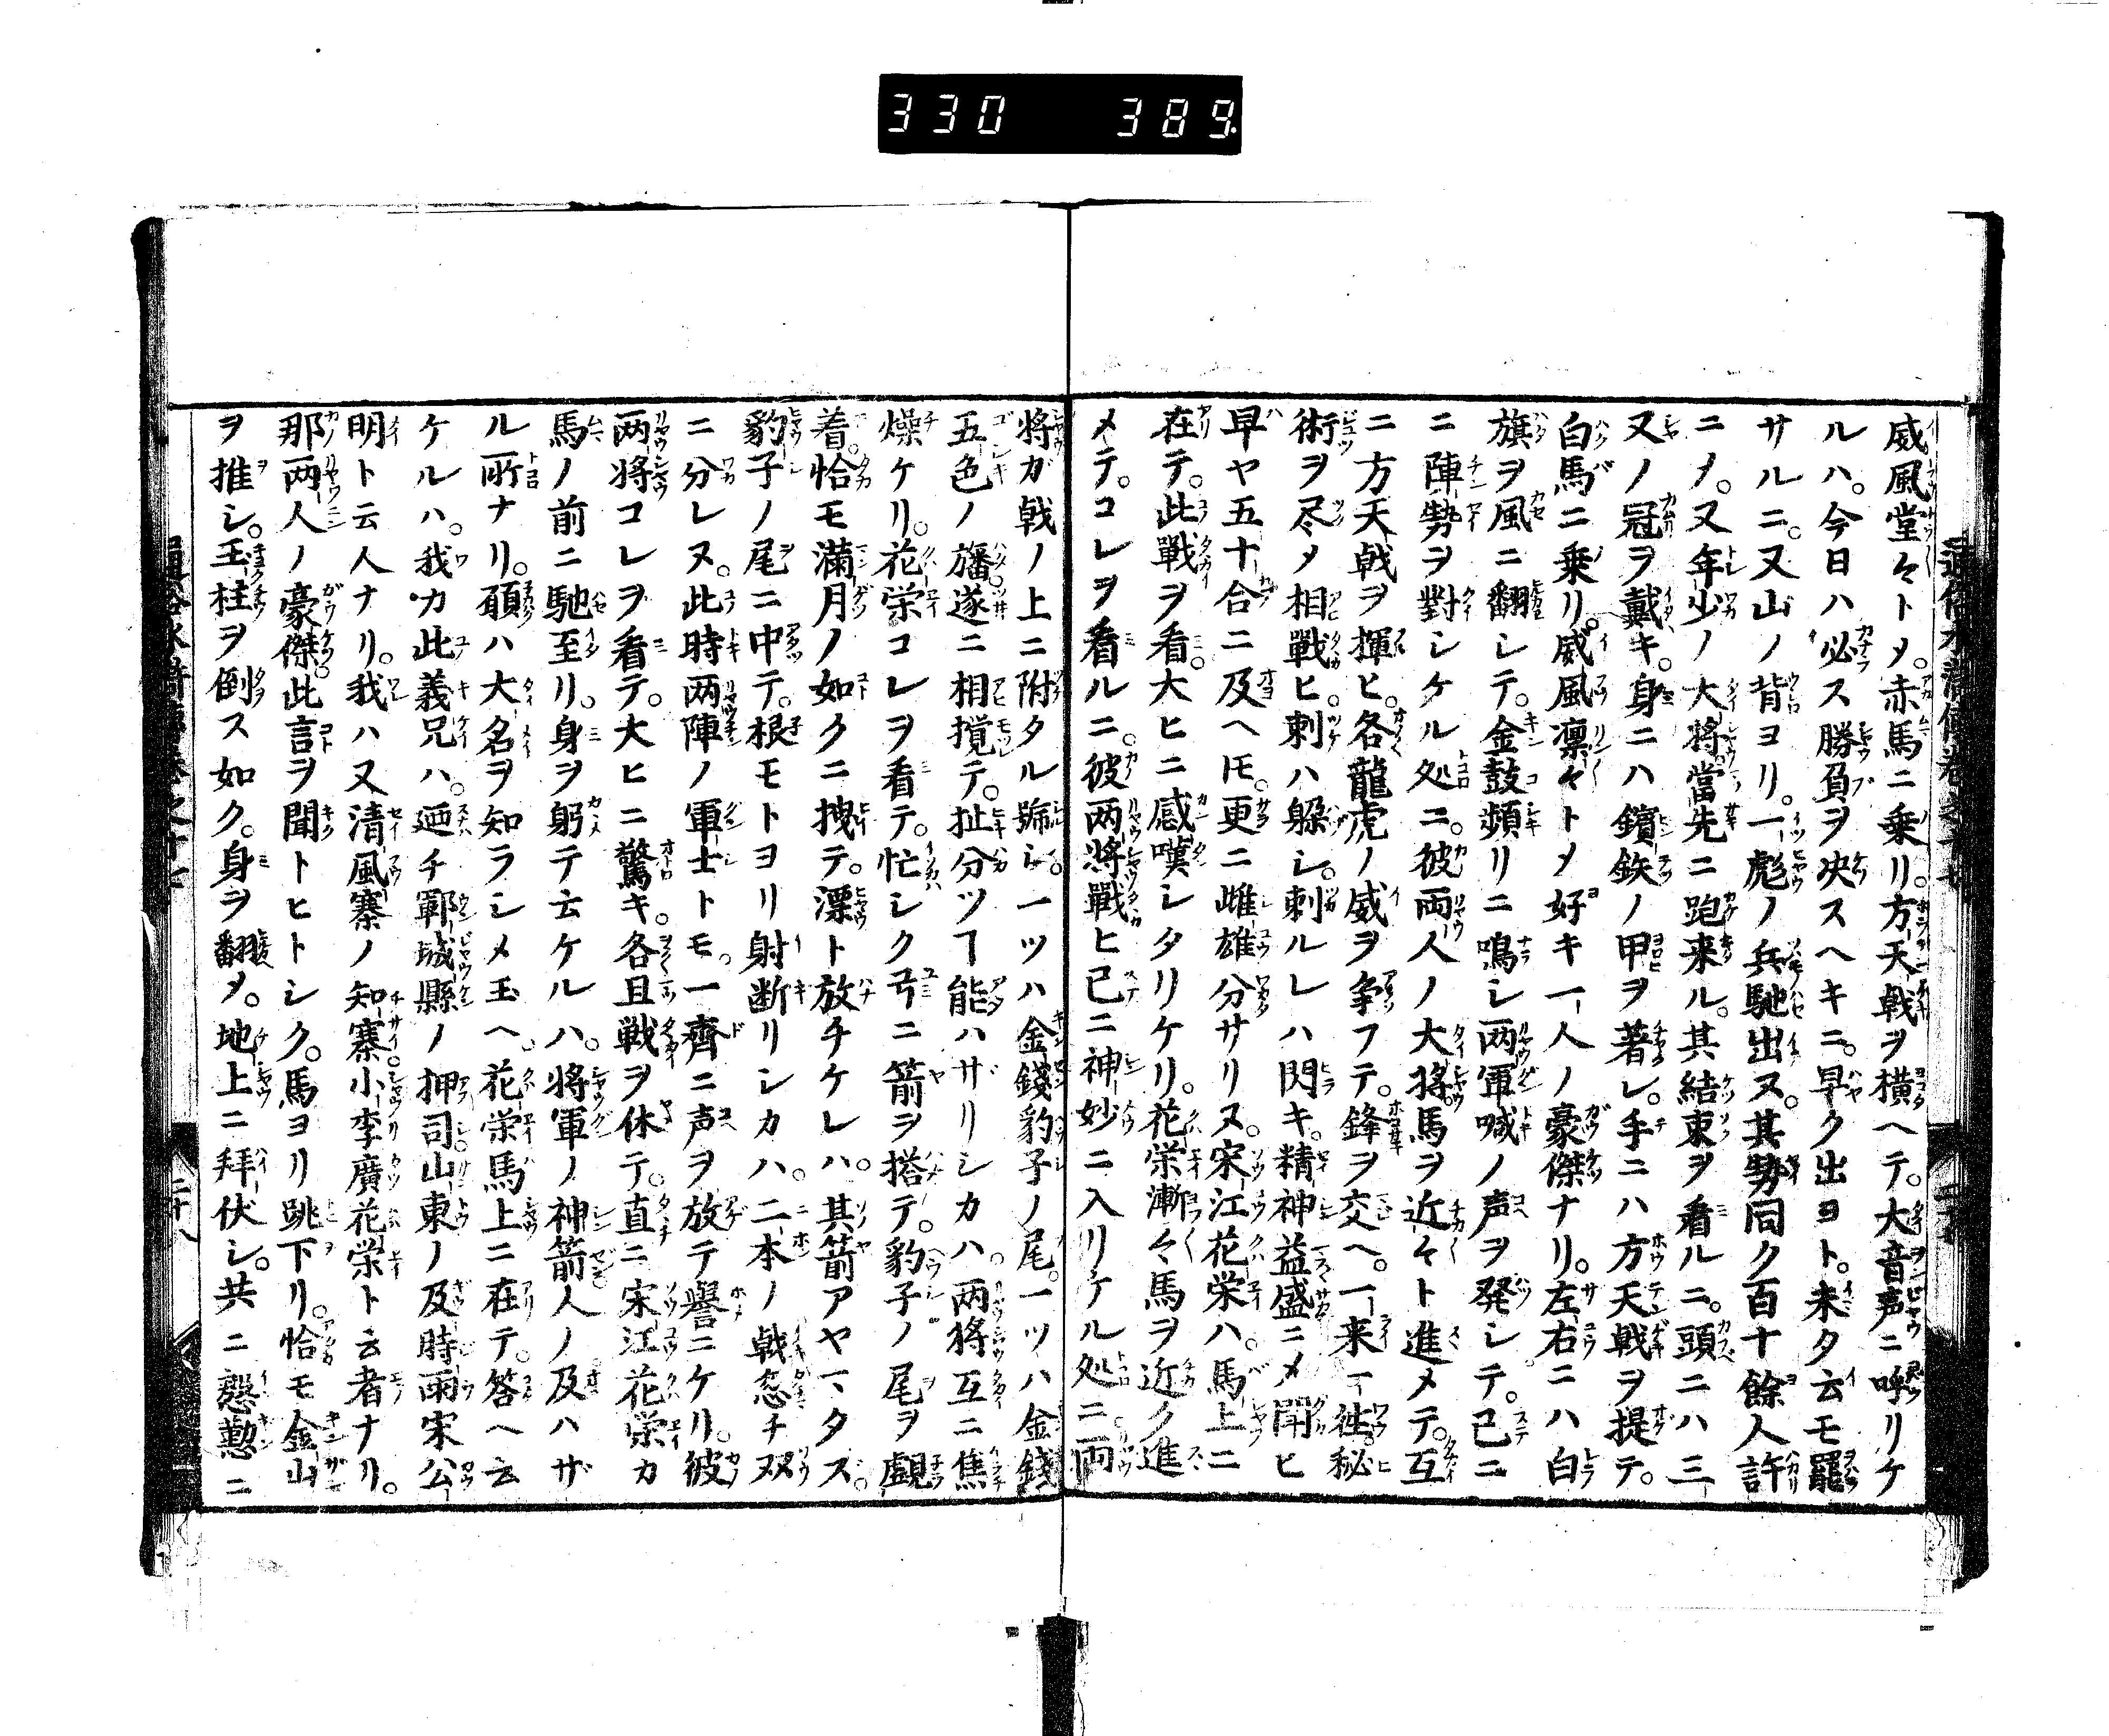 330 389
威風堂々トメ。赤馬ニ乗リ。方天戟ヲ横ヘテ。大音声ニ呼リケ
ルハ。今日ハ必ス勝負ヲ决スヘキニ。早ク出ヨト。未タ云モ罷
サルニ。又山ノ背ヨリ。一彪ノ兵馳出ヌ。其勢同ク百十餘人許
ニメ。又年少ノ大將當先ニ跑来ル。其結束ヲ看ルニ。頭ニハ三
叉ノ冠ヲ戴キ。身ニハ鑌鉄ノ甲ヲ著シ。手ニハ方天戟ヲ提テ。
白馬ニ乗リ。威風凛々トメ好キ一人ノ豪傑ナリ。左右ニハ白
旗ヲ風ニ翻シテ。金鼓頻リニ鳴シ両軍喊ノ声ヲ発シテ。已ニ
ニ陣勢ヲ對シケル処ニ。彼両人ノ大將馬ヲ近々ト進メテ。互
ニ方天戟ヲ揮ヒ。各龍虎ノ威ヲ争フテ。鋒ヲ交ヘ。一来一徃。秘
術ヲ尽メ相戰ヒ。刺ハ躱シ。刺ルレハ閃キ。精神益盛ニメ闘ヒ
早ヤ五十合ニ及ヘ𪜈。更ニ雌雄分サリヌ。宋江花栄ハ。馬上ニ
在テ。此戰ヲ看。大ヒニ感嘆シタリケリ。花栄漸々馬ヲ近ク進
メテ。コレヲ看ルニ。彼两將戰ヒ已ニ神妙ニ入リケル処ニ。両
将ガ戟ノ上ニ附タル號シ。一ツハ金錢豹子ノ尾。一ツハ金錢
五色ノ旛遂ニ相攪テ。扯分ツヿ能ハザリシカハ。两将互ニ焦
燥ケリ。花栄コレヲ看テ。忙シク弓ニ箭ヲ搭テ。豹子ノ尾ヲ覷
着。恰モ滿月ノ如クニ拽テ。漂ト放チケレハ。其箭アヤマタズ。
豹子ノ尾ニ中テ。根モトヨリ射断リシカハ。二本ノ戟忽チ双
ニ分レヌ。此時两陣ノ軍士トモ。一齊ニ声ヲ放テ譽ニケリ。彼
两將コレヲ看テ。大ヒニ驚キ。各且戦ヲ休テ。直ニ宋江花栄カ
馬ノ前ニ馳至リ。身ヲ躬テ云ケルハ。将軍ノ神箭人ノ及ハザ
ル所ナリ。願ハ大名ヲ知ラシメ玉ヘ。花栄馬上ニ在テ。答ヘ云
ケルハ。我カ此義兄ハ。廼チ鄆城縣ノ押司。山東ノ及時雨宋公
明ト云人ナリ。我ハ又清風寨ノ知寨。小李廣花栄ト云者ナリ。
那两人ノ豪傑。此言ヲ聞トヒトシク。馬ヨリ跳下リ。恰モ金山
ヲ推シ。玉柱ヲ倒ス如ク。身ヲ翻メ。地上ニ拜伏シ。共ニ慇懃ニ
二十八